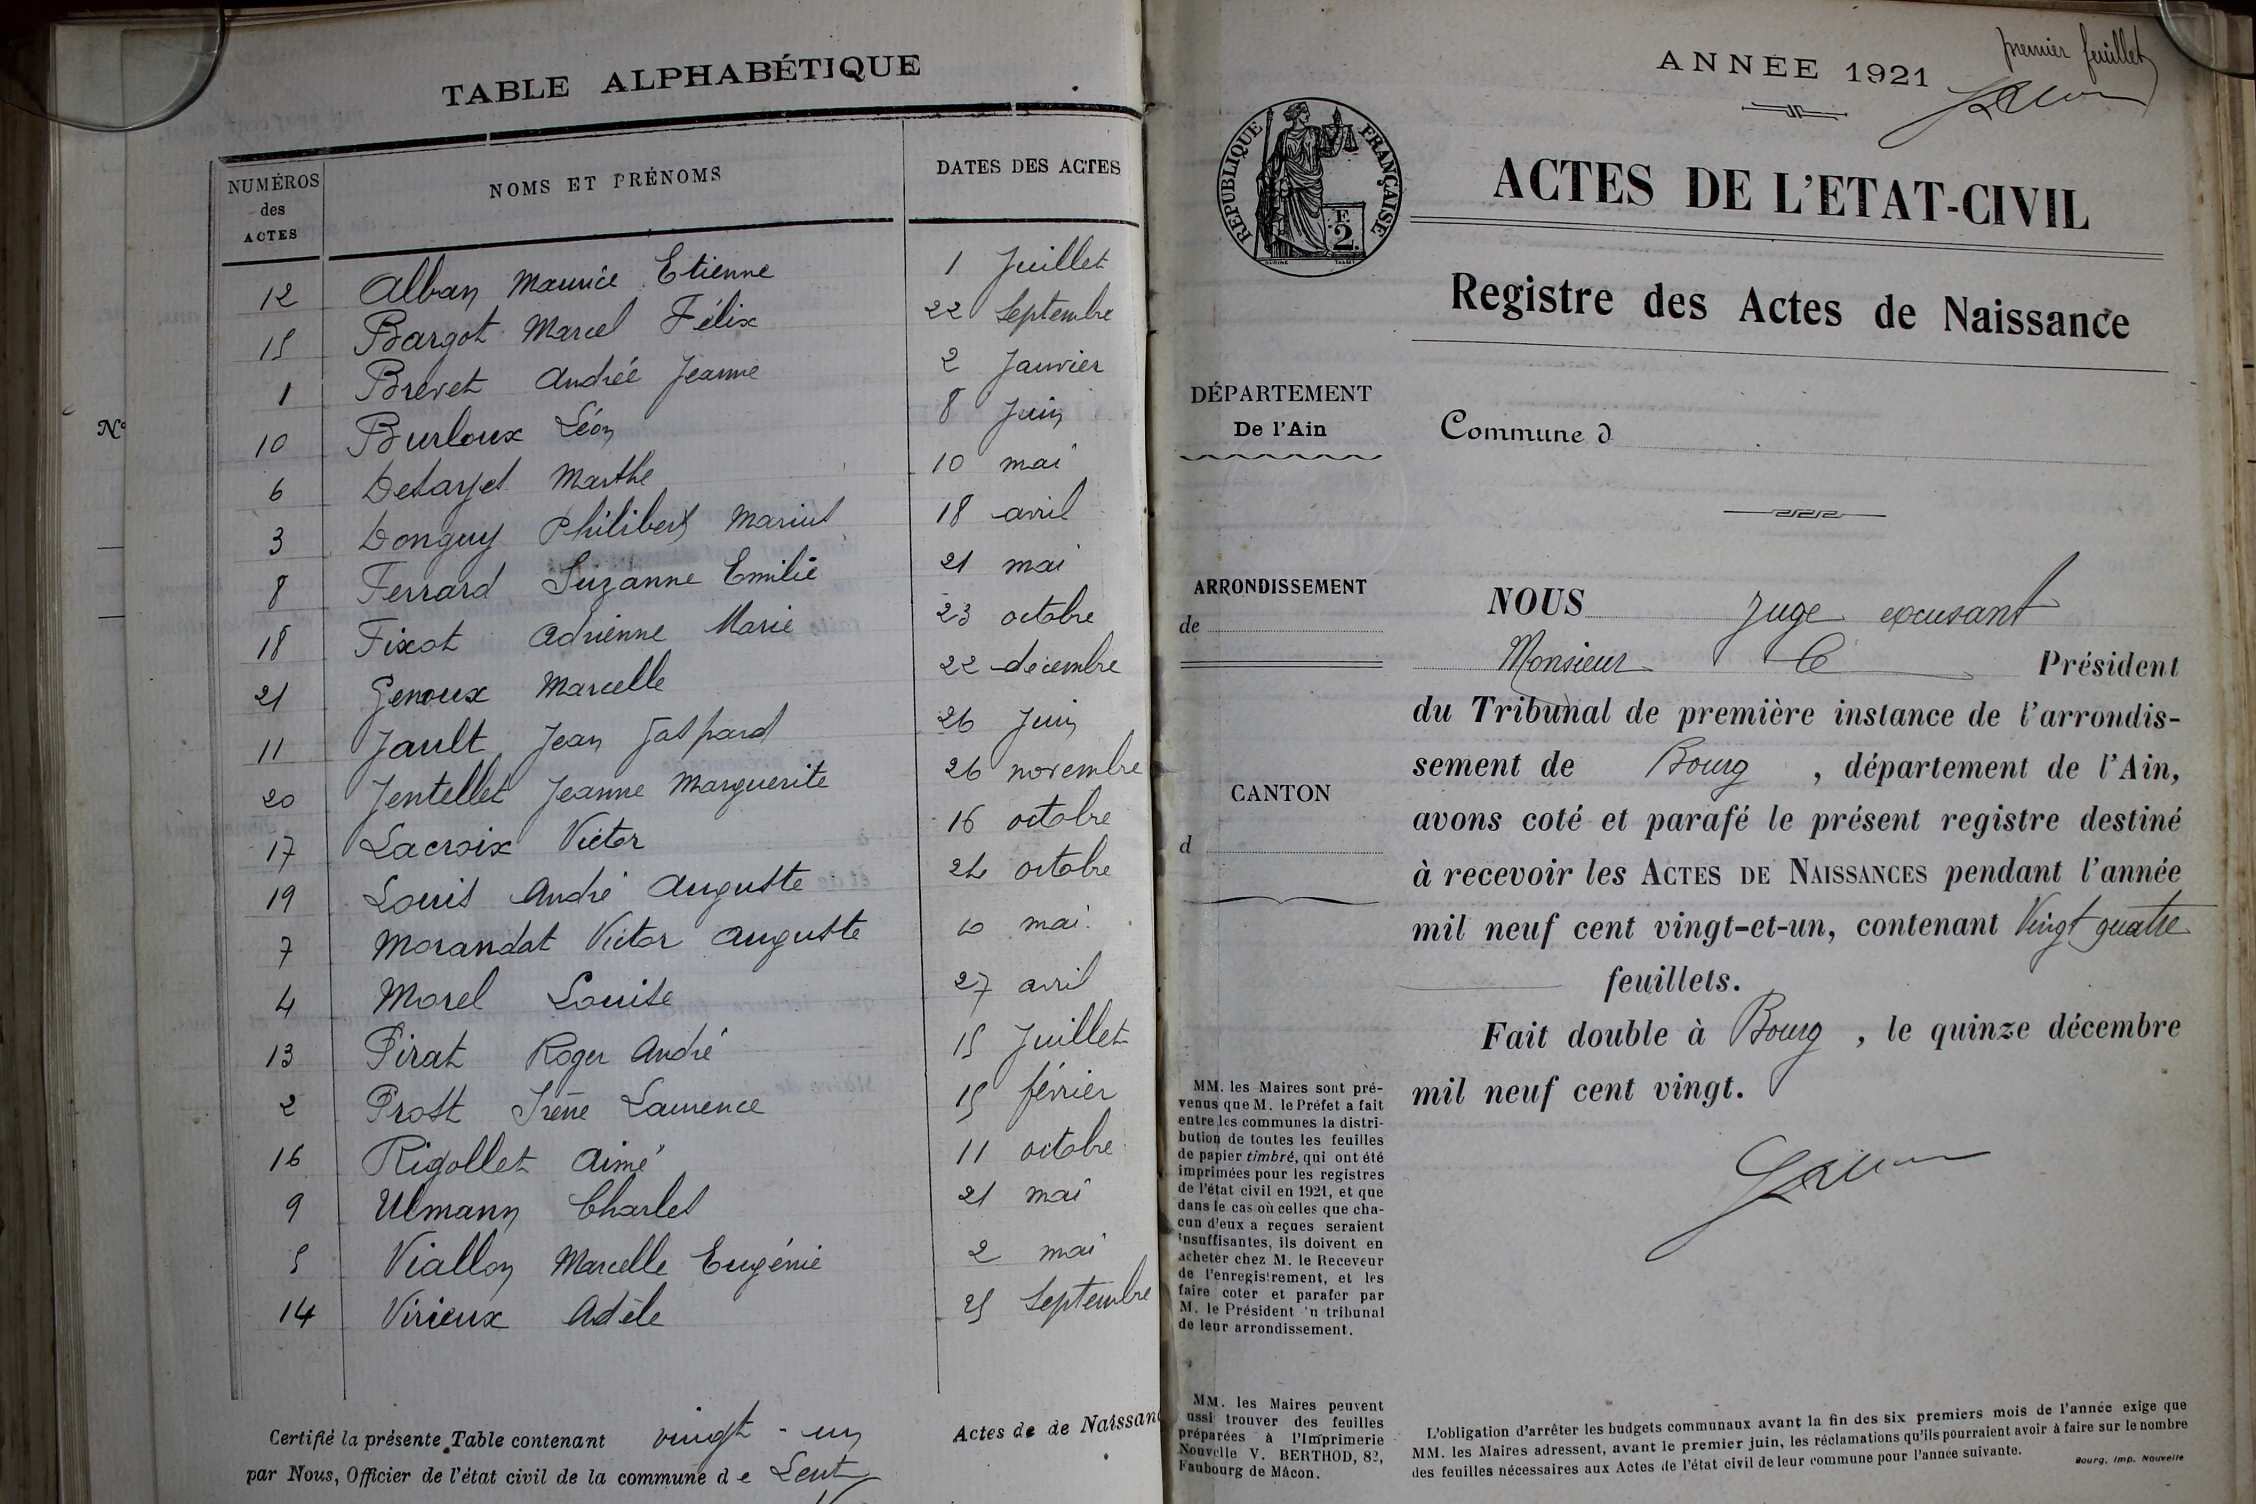 TABLE ALPHABÉTIQUE
NUMÉROS des ACTES NOMS ET PRÉNOMS DATES DES ACTES
12 Alban Maurice Etienne 1 Juillet
15 Bargot Marcel Félix 22 Septembre
1 Brevet Andrée Jeanne 2 Janvier
10 Burloux Léon 8 Juin
6 Marthe 10 mai
3 Donguy Philibert Marius 18 avril
8 Ferrard Suzanne Emilie 21 mai
18 Fixot Adrienne Marie 23 octobre
21 Genoux Marcelle 22 décembre
11 Jault Jean Gaspard 26 Juin
20 Jentellet Jeanne Marguerite 26 novembre
17 Lacroix Victor 16 octobre
19 Louis André Auguste 24 octobre
7 Morandat Victor Auguste 10 mai
4 Morel Louise 27 avril
13 Pirat Roger André 15 Juillet
2 Prost Irène Laurence 15 février
16 Rigollet Aimé 11 octobre
9 Ulmann Charles 21 mai
5 Viallon Marcelle Eugénie 2 mai
14 Virieux Adèle 25 Septembre
Certifié la présente Table contenant vingt-un Actes de de Naissanc
par Nous, Officier de l'état civil de la commune de Lent
N°
premier feuillet
ANNÉE 1921
RÉPUBLIQUE FRANÇAISE
2 F.
ACTES DE L'ETAT-CIVIL
Registre des Actes de Naissance
DÉPARTEMENT
De l'Ain
Commune d
ARRONDISSEMENT
de
CANTON
d
NOUS Juge excusant
Monsieur le Président
du Tribunal de première instance de l'arrondis-
sement de Bourg, département de l'Ain,
avons coté et parafé le présent registre destiné
à recevoir les ACTES DE NAISSANCES pendant l'année
mil neuf cent vingt-et-un, contenant Vingt quatre
feuillets.
Fait double à Bourg, le quinze décembre
mil neuf cent vingt.
MM. les Maires sont pré-
venus que M. le Préfet a fait
entre les communes la distri-
bution de toutes les feuilles
de papier timbré, qui ont été
imprimées pour les registres
de l'état civil en 1921, et que
dans le cas où celles que cha-
cun d'eux a reçues seraient
insuffisantes, ils doivent en
acheter chez M. le Receveur
de l'enregistrement, et les
faire coter et parafer par
M. le Président 'n tribunal
de leur arrondissement.
MM. les Maires peuvent
ussi trouver des feuilles
préparées à l'Imprimerie
Nouvelle V. BERTHOD, 82,
Faubourg de Mâcon.
L'obligation d'arrêter les budgets communaux avant la fin des six premiers mois de l'année exige que
MM. les Maires adressent, avant le premier juin, les réclamations qu'ils pourraient avoir à faire sur le nombre
des feuilles nécessaires aux Actes de l'état civil de leur commune pour l'année suivante.
Bourg, Imp. Nouvelle